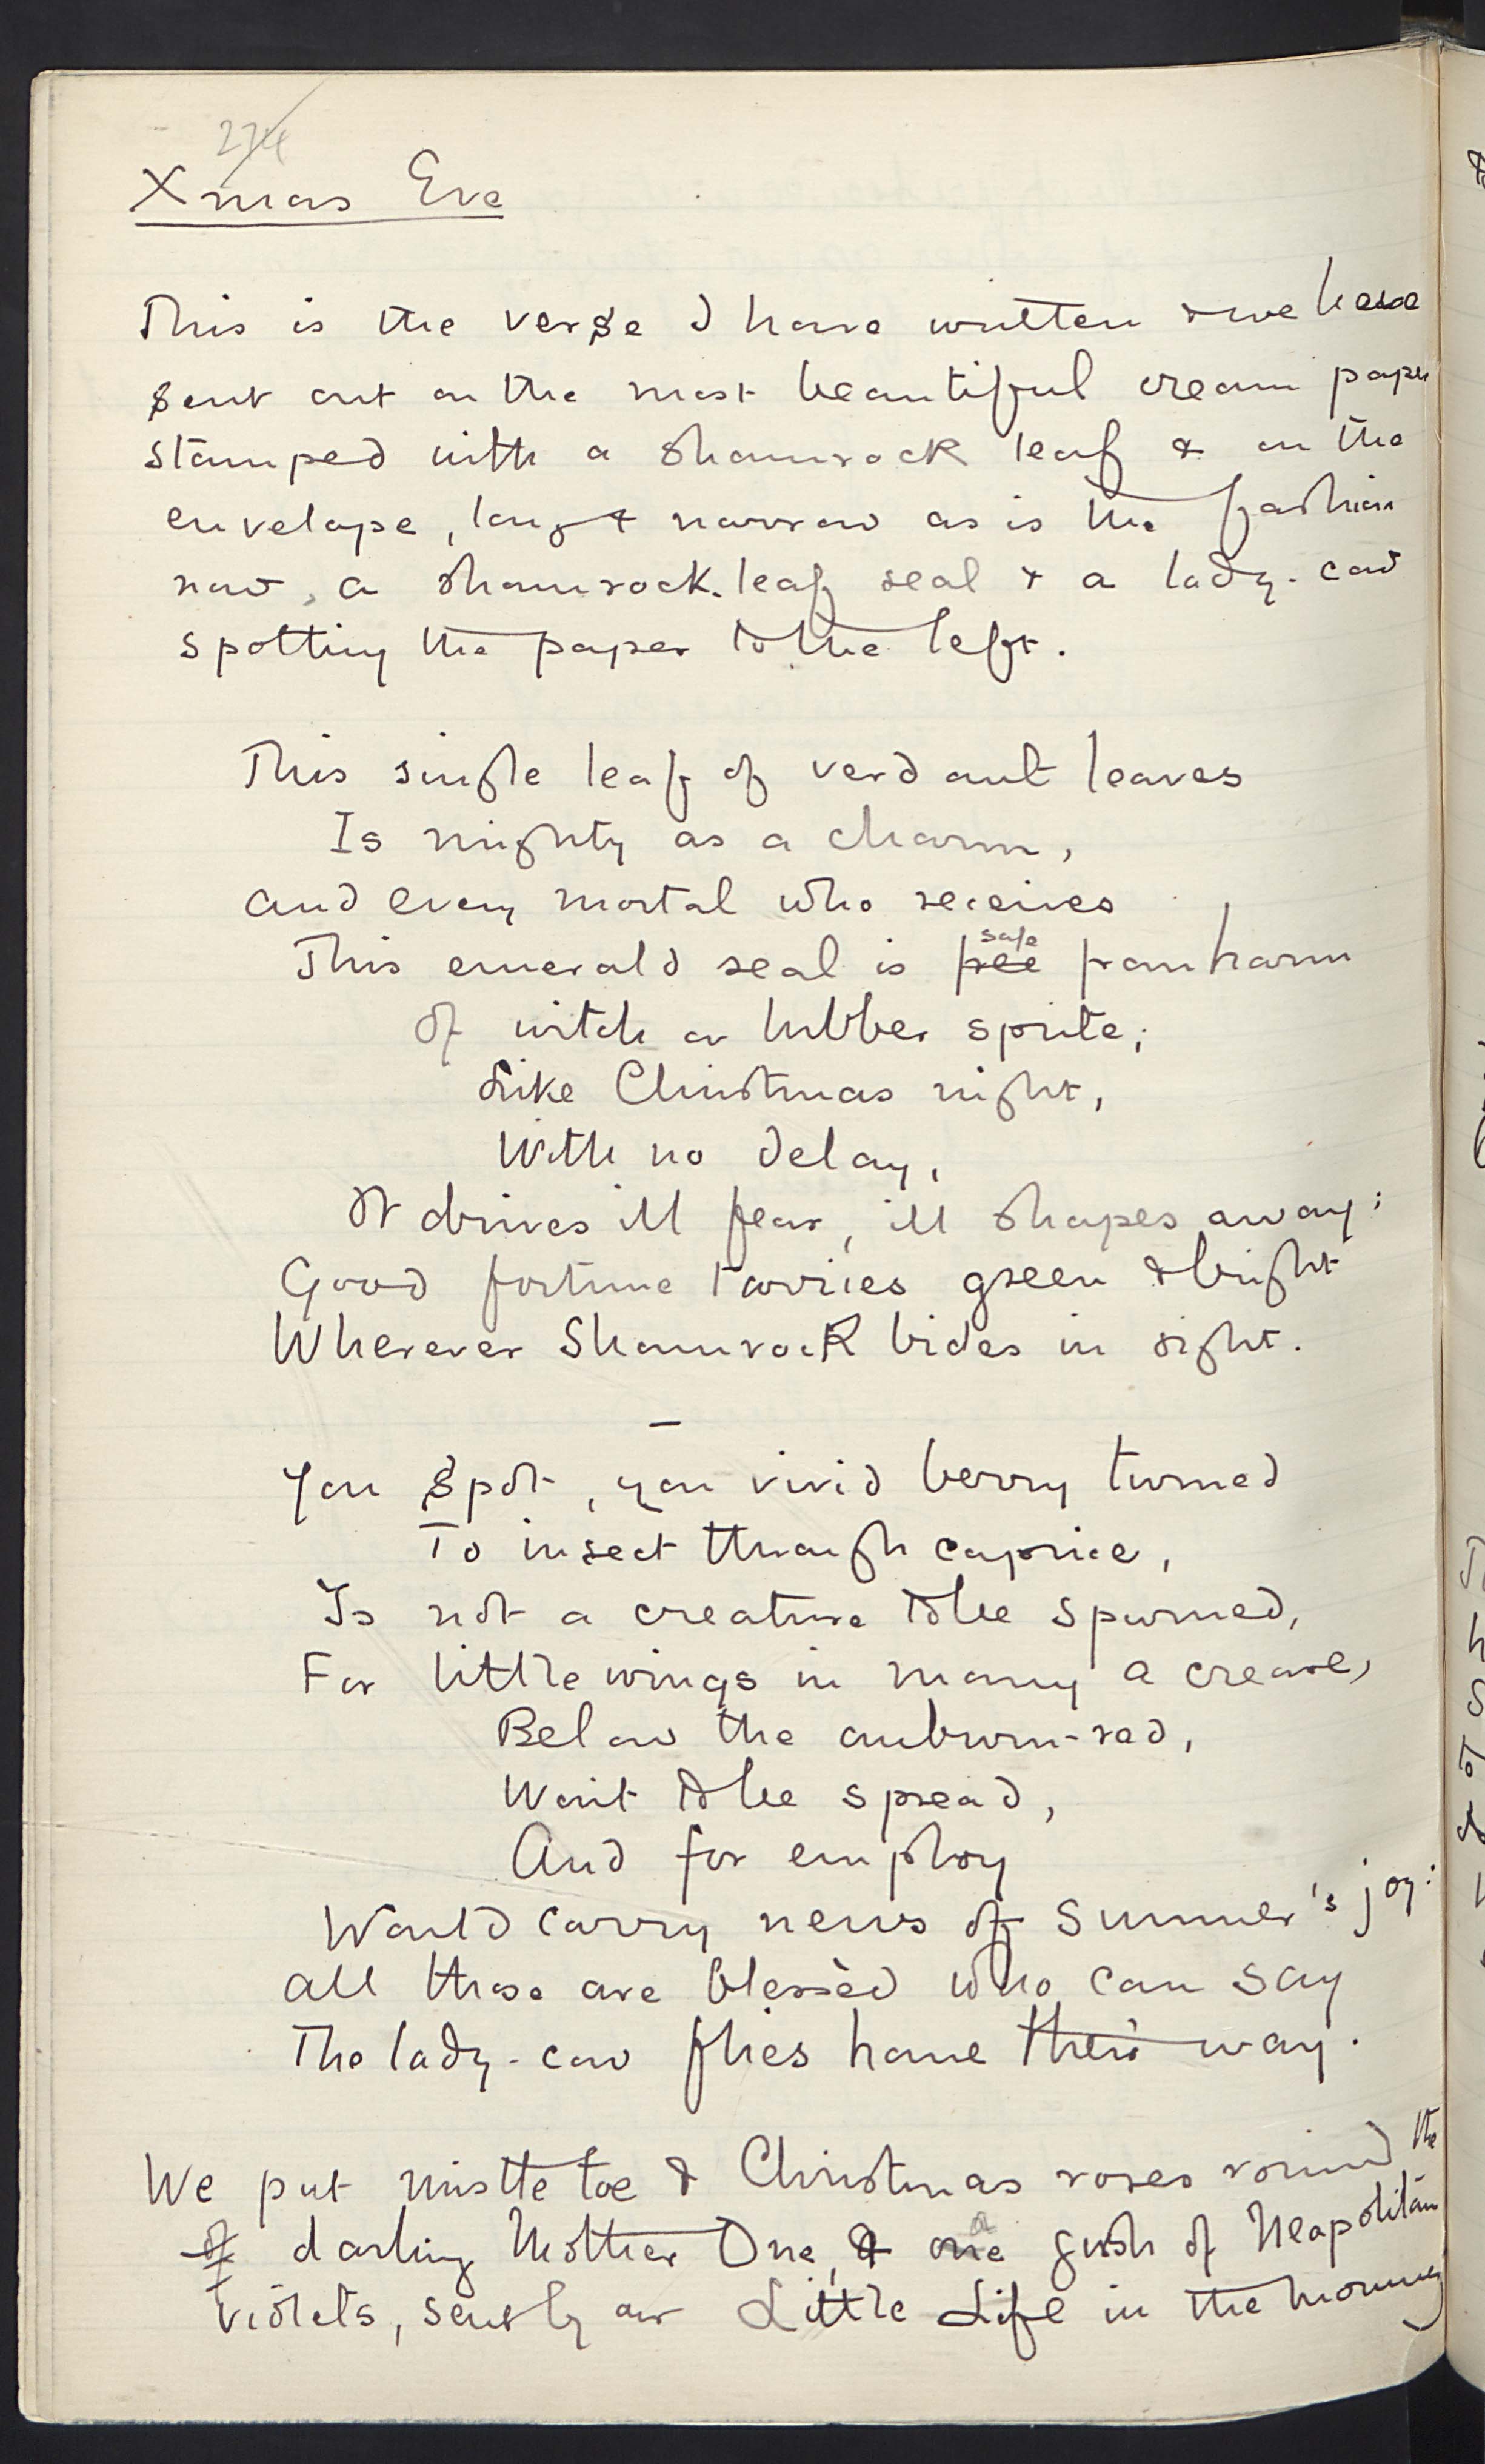 274
Xmas Eve
This is the verse I have written & we have
sent out on the most beautiful cream paper
stamped with a shamrock leaf & on the
envelope, long & narrow as is the fashion
now, a shamrock-leaf seal & a lady-cow
spotting the paper to the left.
This single leaf of verdant leaves
Is mighty as a charm,
And every mortal who receives
safe
This emerald seal is free from harm
Of witch or lubber sprite;
Like Christmas night,
With no delay,
It drives ill fear, ill shapes away:
Good fortune tarries green & bright
Wherever Shamrock bides in sight.
Yon Spot, yon vivid berry turned
To insect through caprice,
Is not a creature to be spurned,
For little wings in many a crease,
Below the auburn-red,
Wait to be spread,
And for employ
Would carry news of Summer's joy:
All those are blessèd who can say
The lady-cow flies home their way.
We put mistletoe & Christmas roses round the
of darling Mother One, & one a gush of Neapolitan
violets, sent by our Little Life in the morning